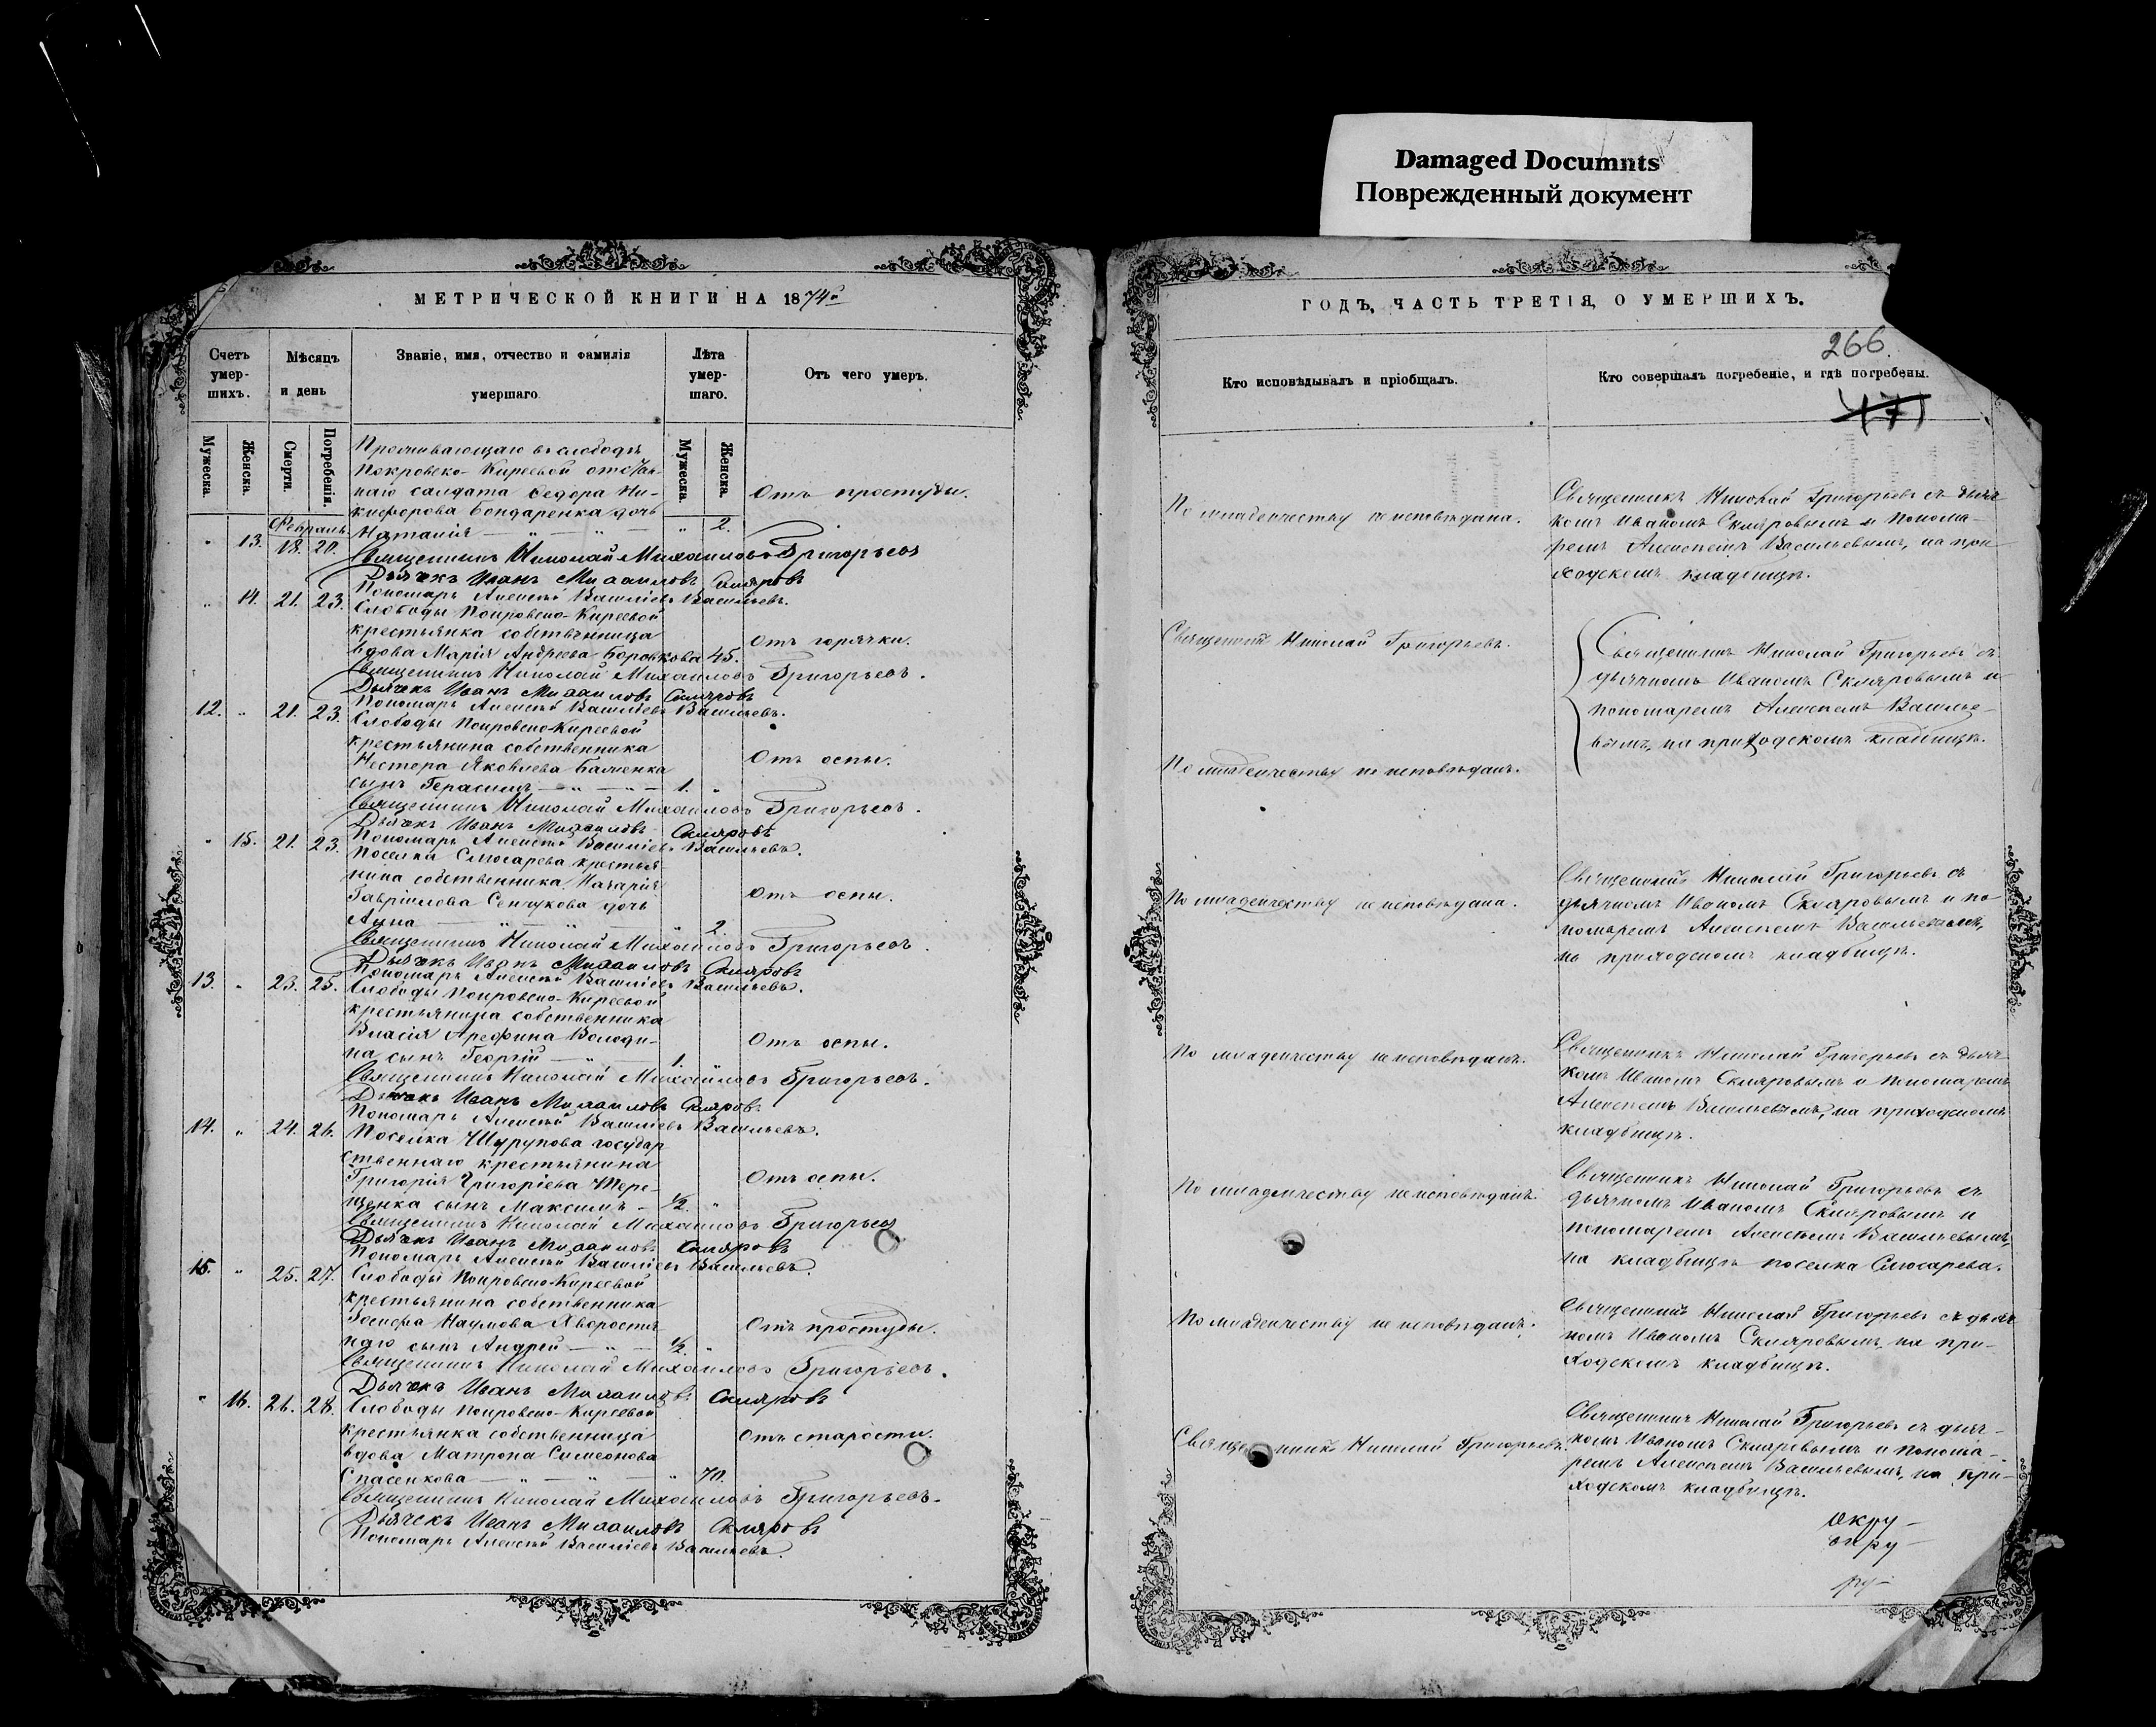 Damaged Documnts
Поврежденный документ
МЕТРИЧЕСКОЙ КНИГИ НА 1874й
Счетъ умер-шихъ.
Мѣсяцъ и день
Званіе, имя, отчество и фамилія умершаго.
Лѣта умер-шаго.
Отъ чего умеръ.
Мужеска.
Женска.
Смерти.
Погребенія.
Мужеска.
Женска.
Проживающаго въ слободѣ
Покровско-Киреевой отстав-
наго салдата Ѳедора Ни-
кифорова Бондаренка дочь
Февраль
" 13. 18. 20. Наталія " 2. Отъ простуды.
Священникъ Николай Михаиловъ Григорьевъ
Дьячекъ Иванъ Михаиловъ Скляровъ
Пономарь Алексѣй Василіевъ Васильевъ.
" 14. 21. 23. Слободы Покровско-Киреевой
крестьянка собственница
вдова Марія Андреева Боровкова 45. Отъ горячки.
Священникъ Николай Михаиловъ Григорьевъ.
Дьячекъ Иванъ Михаиловъ Скляровъ
Пономарь Алексѣй Василіевъ Васильевъ.
12. " 21. 23. Слободы Покровско-Киреевой
крестьянина собственника
Нестера Яковлева
сынъ Герасимъ 1. " Отъ оспы.
Священникъ Николай Михаиловъ Григорьевъ.
Дьячекъ Иванъ Михаиловъ Скляровъ
Пономарь Алексѣй Василіевъ Васильевъ.
" 15. 21. 23. Поселка Слюсарева крестья-
нина собственника Назарія
Гавріилова Сенчукова дочь
Анна " 2. Отъ оспы.
Священникъ Николай Михаиловъ Григорьевъ.
Дьячекъ Иванъ Михаиловъ Скляровъ
Пономарь Алексѣй Василіевъ Васильевъ.
13. " 23. 25. Слободы Покровско-Киреевой
крестьянина собственника
Власія Арефина Володи-
на сынъ Георгій 1. " Отъ оспы.
Священникъ Николай Михаиловъ Григорьевъ.
Дьячекъ Иванъ Михаиловъ Скляровъ
Пономарь Алексѣй Василіевъ Васильевъ.
14. " 24. 26. Поселка Шурупова государ
ственнаго крестьянина
Григорія Григоріева Тере-
щенка сынъ Максимъ ½. " Отъ оспы.
Священникъ Николай Михаиловъ Григорьевъ
Дьячекъ Иванъ Михаиловъ Скляровъ
Пономарь Алексѣй Василіевъ Васильевъ.
15. " 25. 27. Слободы Покровско-Киреевой
крестьянина собственника
Іосифа Наумова Хворостя
наго сынъ Андрей ½. " Отъ простуды.
Священникъ Николай Михаиловъ Григорьевъ.
Дьячекъ Иванъ Михаиловъ Скляровъ
" 16. 26. 28. Слободы Покровско-Киреевой
крестьянка собственница
вдова Матрона Симеонова
Спасенкова " 70. Отъ старости.
Священникъ Николай Михаиловъ Григорьевъ.
Дьячекъ Иванъ Михаиловъ Скляровъ
Пономарь Алексѣй Василіевъ Васильевъ.
ГОДЪ, ЧАСТЬ ТРЕТІЯ, О УМЕРШИХЪ.
266.
Кто исповѣдывалъ и пріобщалъ.
Кто совершалъ погребеніе, и гдѣ погребены.
По младенчеству не исповѣдана.
Священникъ Николай Григорьевъ съ дьяч
комъ Иваномъ Скляровымъ и Понома-
ремъ Алексѣемъ Васильевымъ, на при-
ходскомъ кладбищѣ.
Священникъ Николай Григорьевъ.
Священникъ Николай Григорьевъ съ
дьячкомъ Иваномъ Скляровымъ и
пономаремъ Алексѣемъ Василье-
вымъ, на приходскомъ кладбищѣ.
По младенчеству не исповѣданъ.
По младенчеству не исповѣдана.
Священникъ Николай Григорьевъ съ
дьячкомъ Иваномъ Скляровымъ и по
номаремъ Алексѣемъ Васильевымъ,
на приходскомъ кладбищѣ.
По младенчеству не исповѣданъ.
Священникъ Николай Григорьевъ съ дьяч-
комъ Иваномъ Скляровымъ и Пономаремъ
Алексѣемъ Васильевымъ, на приходскомъ
кладбищѣ.
По младенчеству не исповѣданъ.
Священникъ Николай Григорьевъ съ
дьячкомъ Иваномъ Скляровымъ и
пономаремъ Алексѣемъ Васильевымъ,
на кладбищѣ поселка Слюсарева.
По младенчеству не исповѣданъ.
Священникъ Николай Григорьевъ съ дьяч
комъ Иваномъ Скляровымъ, на при-
ходскомъ кладбищѣ.
Священникъ Николай Григорьевъ.
Священникъ Николай Григорьевъ съ дьяч-
комъ Иваномъ Скляровымъ и понома-
ремъ Алексѣемъ Васильевымъ, на при-
ходскомъ кладбищѣ.
окру-
окру-
ру-